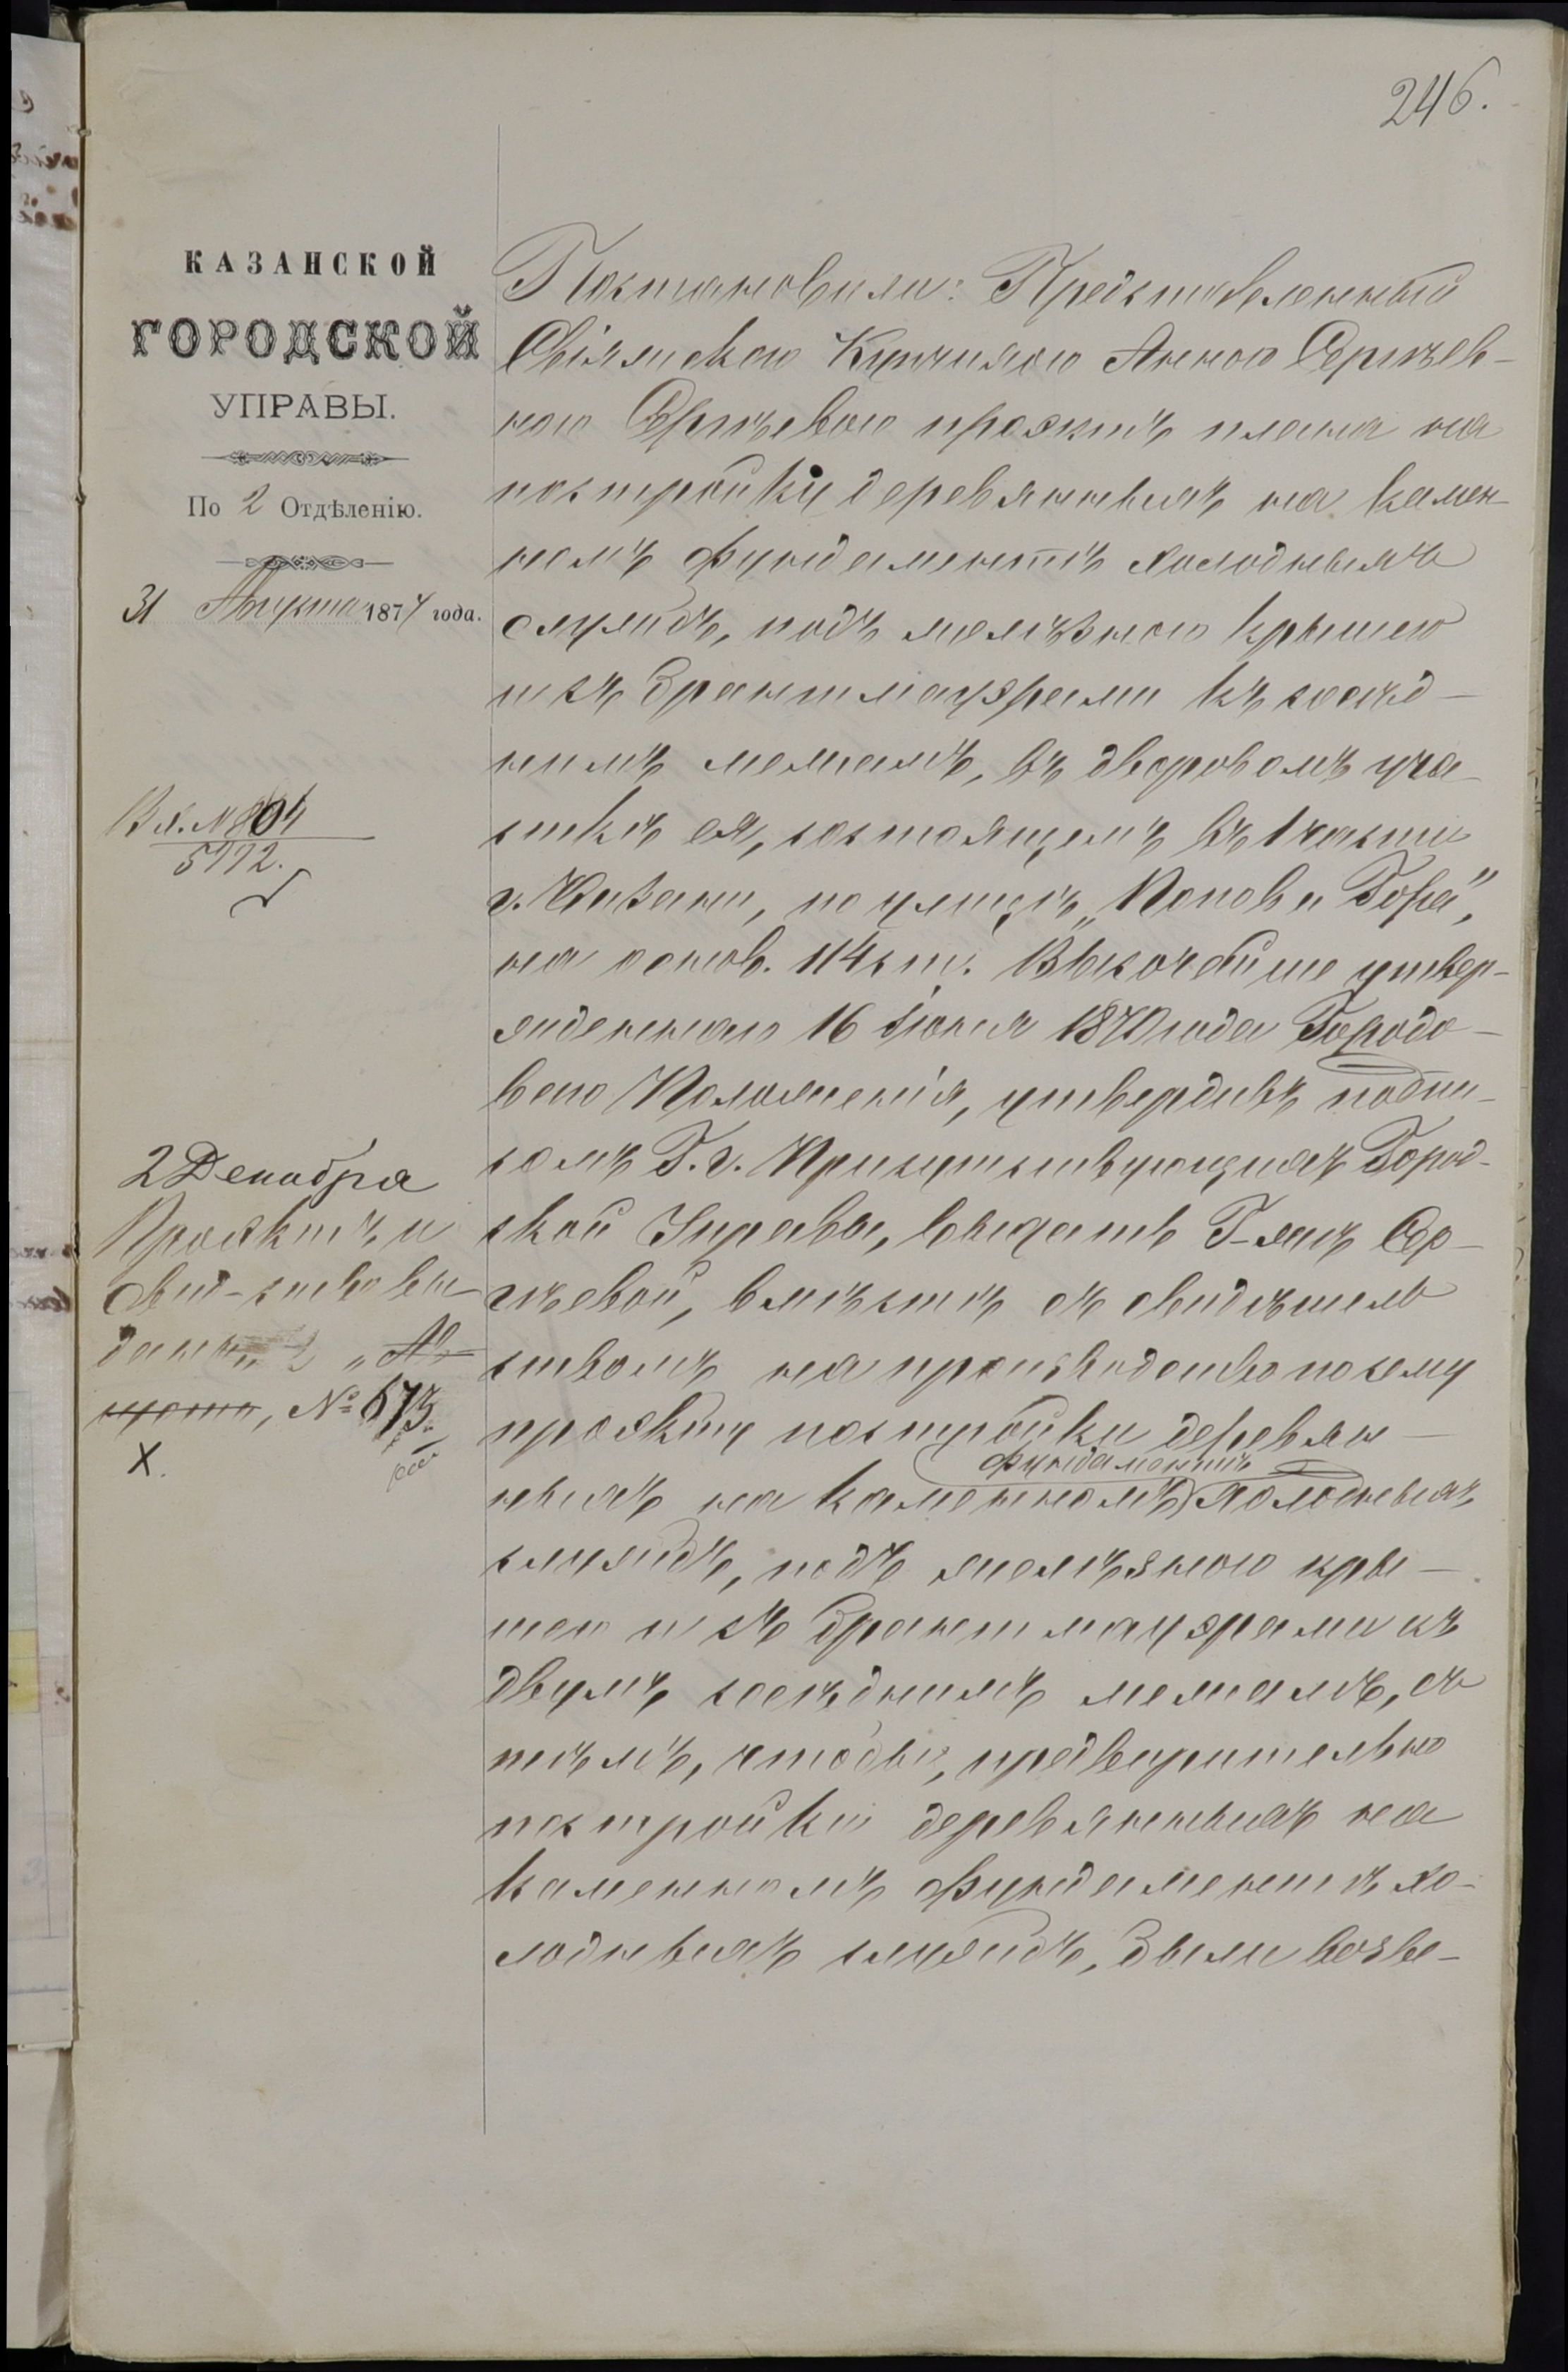 246.
КАЗАНСКОЙ
ГОРОДСКОЙ
УПРАВЫ.
По 2 Отдѣленію.
31 Августа 1874 года.
Вх. № 804
5772.
2 Декабря
Проэктъ и
свид-ство вы-
даны 2
№ 673.
X.
Постановили: Представленный
Свіяжскою Купчихою Анною Сергѣев-
ною Сергѣевою проэктъ плана на
постройку деревянныхъ на камен-
номъ фундаментѣ холодныхъ
службъ, подъ желѣзною крышею
и съ брантмауэрами къ сосѣд-
нимъ межамъ, въ дворовомъ уча-
сткѣ ея, состоящемъ въ 1 части
г. Казани, по улицѣ „Попова Гора",
на основ. 114 ст. Высочайше утвер-
жденнаго 16 Іюня 1870 года Городо-
ваго Положенія, утвердивъ подпи-
сомъ Г.г. Присутствующихъ Город-
ской Управы, выдать Г-жѣ Сер-
гѣевой, вмѣстѣ съ свидѣтель
ствомъ на производство по сему
проэкту постройки деревян-
ныхъ на каменномъ фундаментѣ холодныхъ
службъ, подъ желѣзною кры-
шею и съ брантмауэрами къ
двумъ сосѣднимъ межамъ, съ
тѣмъ, чтобы, предварительно
постройки деревянныхъ на
каменномъ фундаментѣ хо-
лодныхъ службъ, были возве-